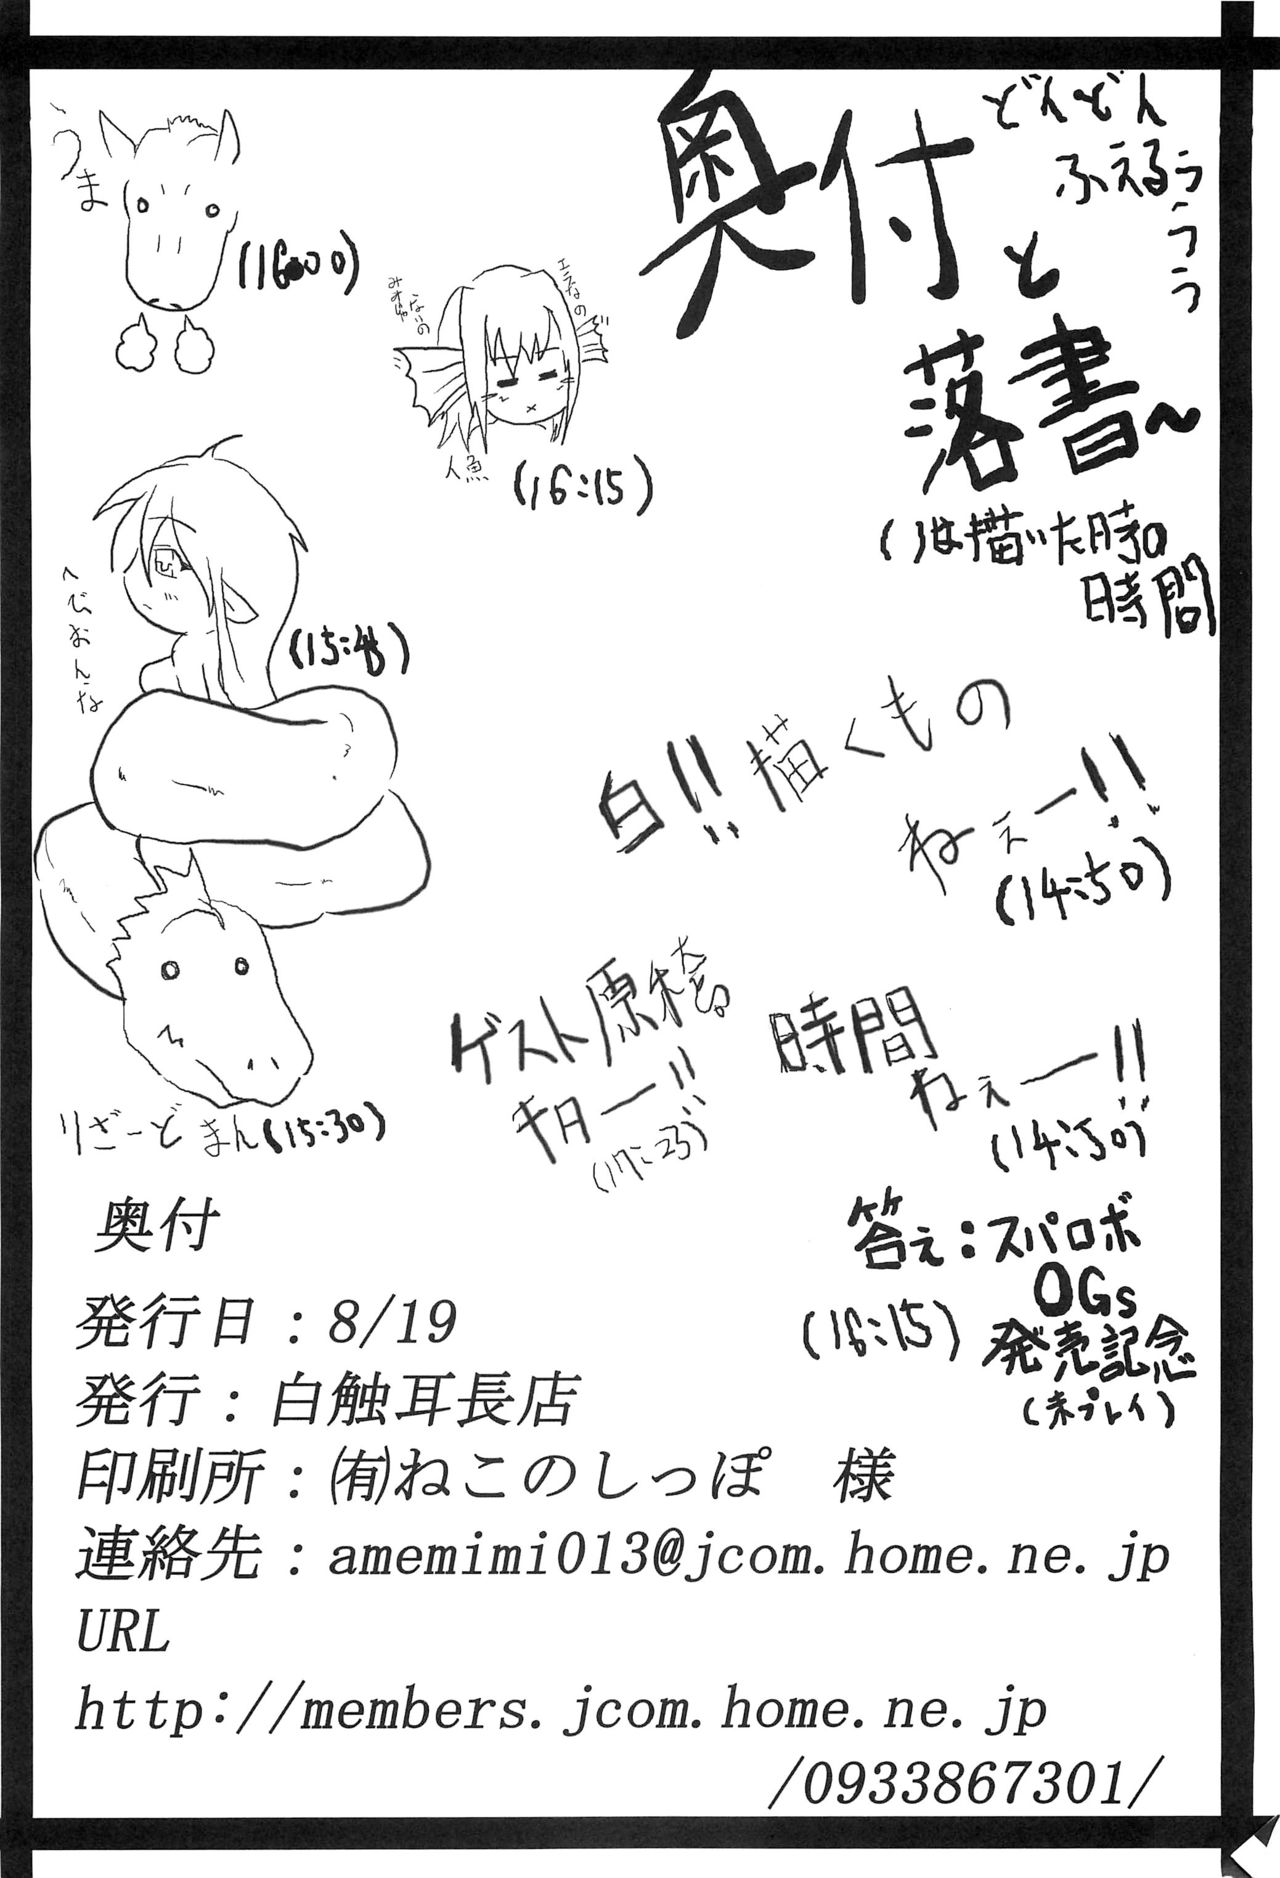 奥付と
落書〜
どんどん
ふえるぅ
うぅぅ
( )は描いた時の
時間
うま
(16:00)
エラなの
みみじゃないの
人魚
(16:15)
へびおんな
(15:45)
白!!描くもの
ねぇー!!
(14:50)
ゲスト原稿
キター!!
(17:23)
時間
ねぇー!!
(14:50)
りざーどまん(15:30)
答え:スパロボ
OGs
発売記念
(未プレイ)
(16:15)
奥付
発行日：8/19
発行：白触耳長店
印刷所：㈲ねこのしっぽ　様
連絡先：amemimi013@jcom.home.ne.jp
URL
http://members.jcom.home.ne.jp
/0933867301/